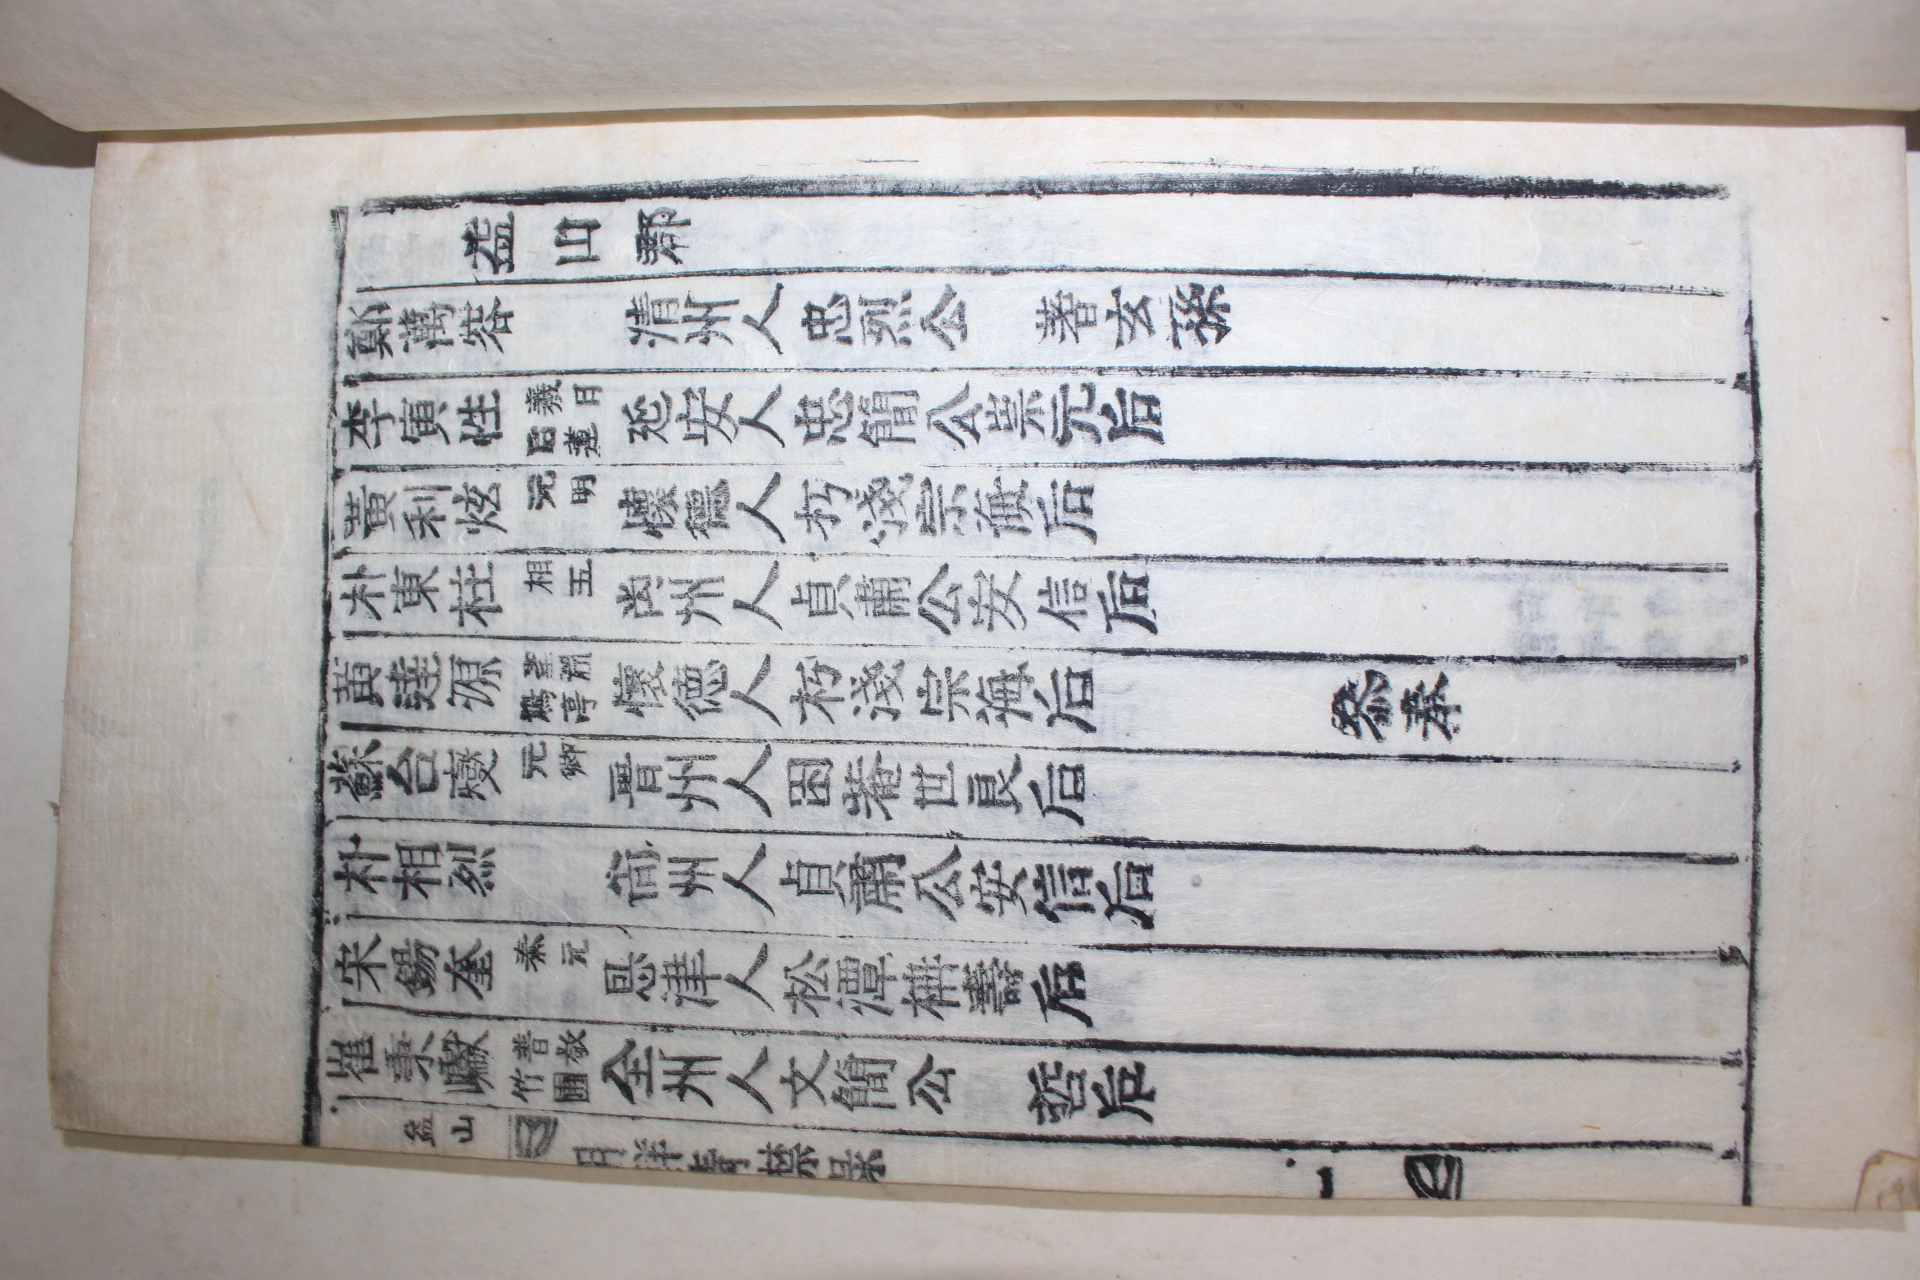 益山郡
鄭萬容 清州人忠烈公 蓍玄孫
李寅性 羲日 后蓮 延安人忠簡公崇元后
黃利炫 元明 懷德人朽淺宗海后
朴東柱 相五 尙州人貞肅公安信后
黃達源 鶴亭 懷德人朽淺宗海后 叅奉
蘇台燮 元卿 晋州人困菴世良后
朴相烈 尙州人貞肅公安信后
宋錫奎 秦元 恩津人松潭枏壽后
崔秉巘 普敬 竹圃 全州人文簡公 哲后
益山
青襟录
一